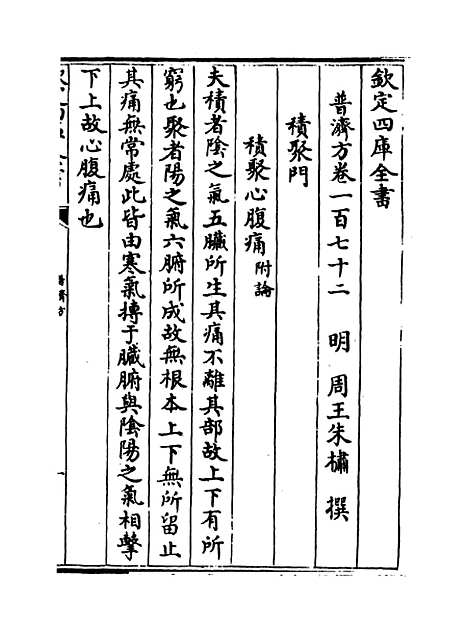 欽定四庫全書
普濟方卷一百七十二　明　周王朱橚　撰
積聚門
積聚心腹痛附論
夫積者陰之氣五臟所生其痛不離其部故上下有所
窮也聚者陽之氣六腑所成故無根本上下無所留止
其痛無常處此皆由寒氣搏于臟腑與陰陽之氣相擊
下上故心腹痛也
普濟方
一